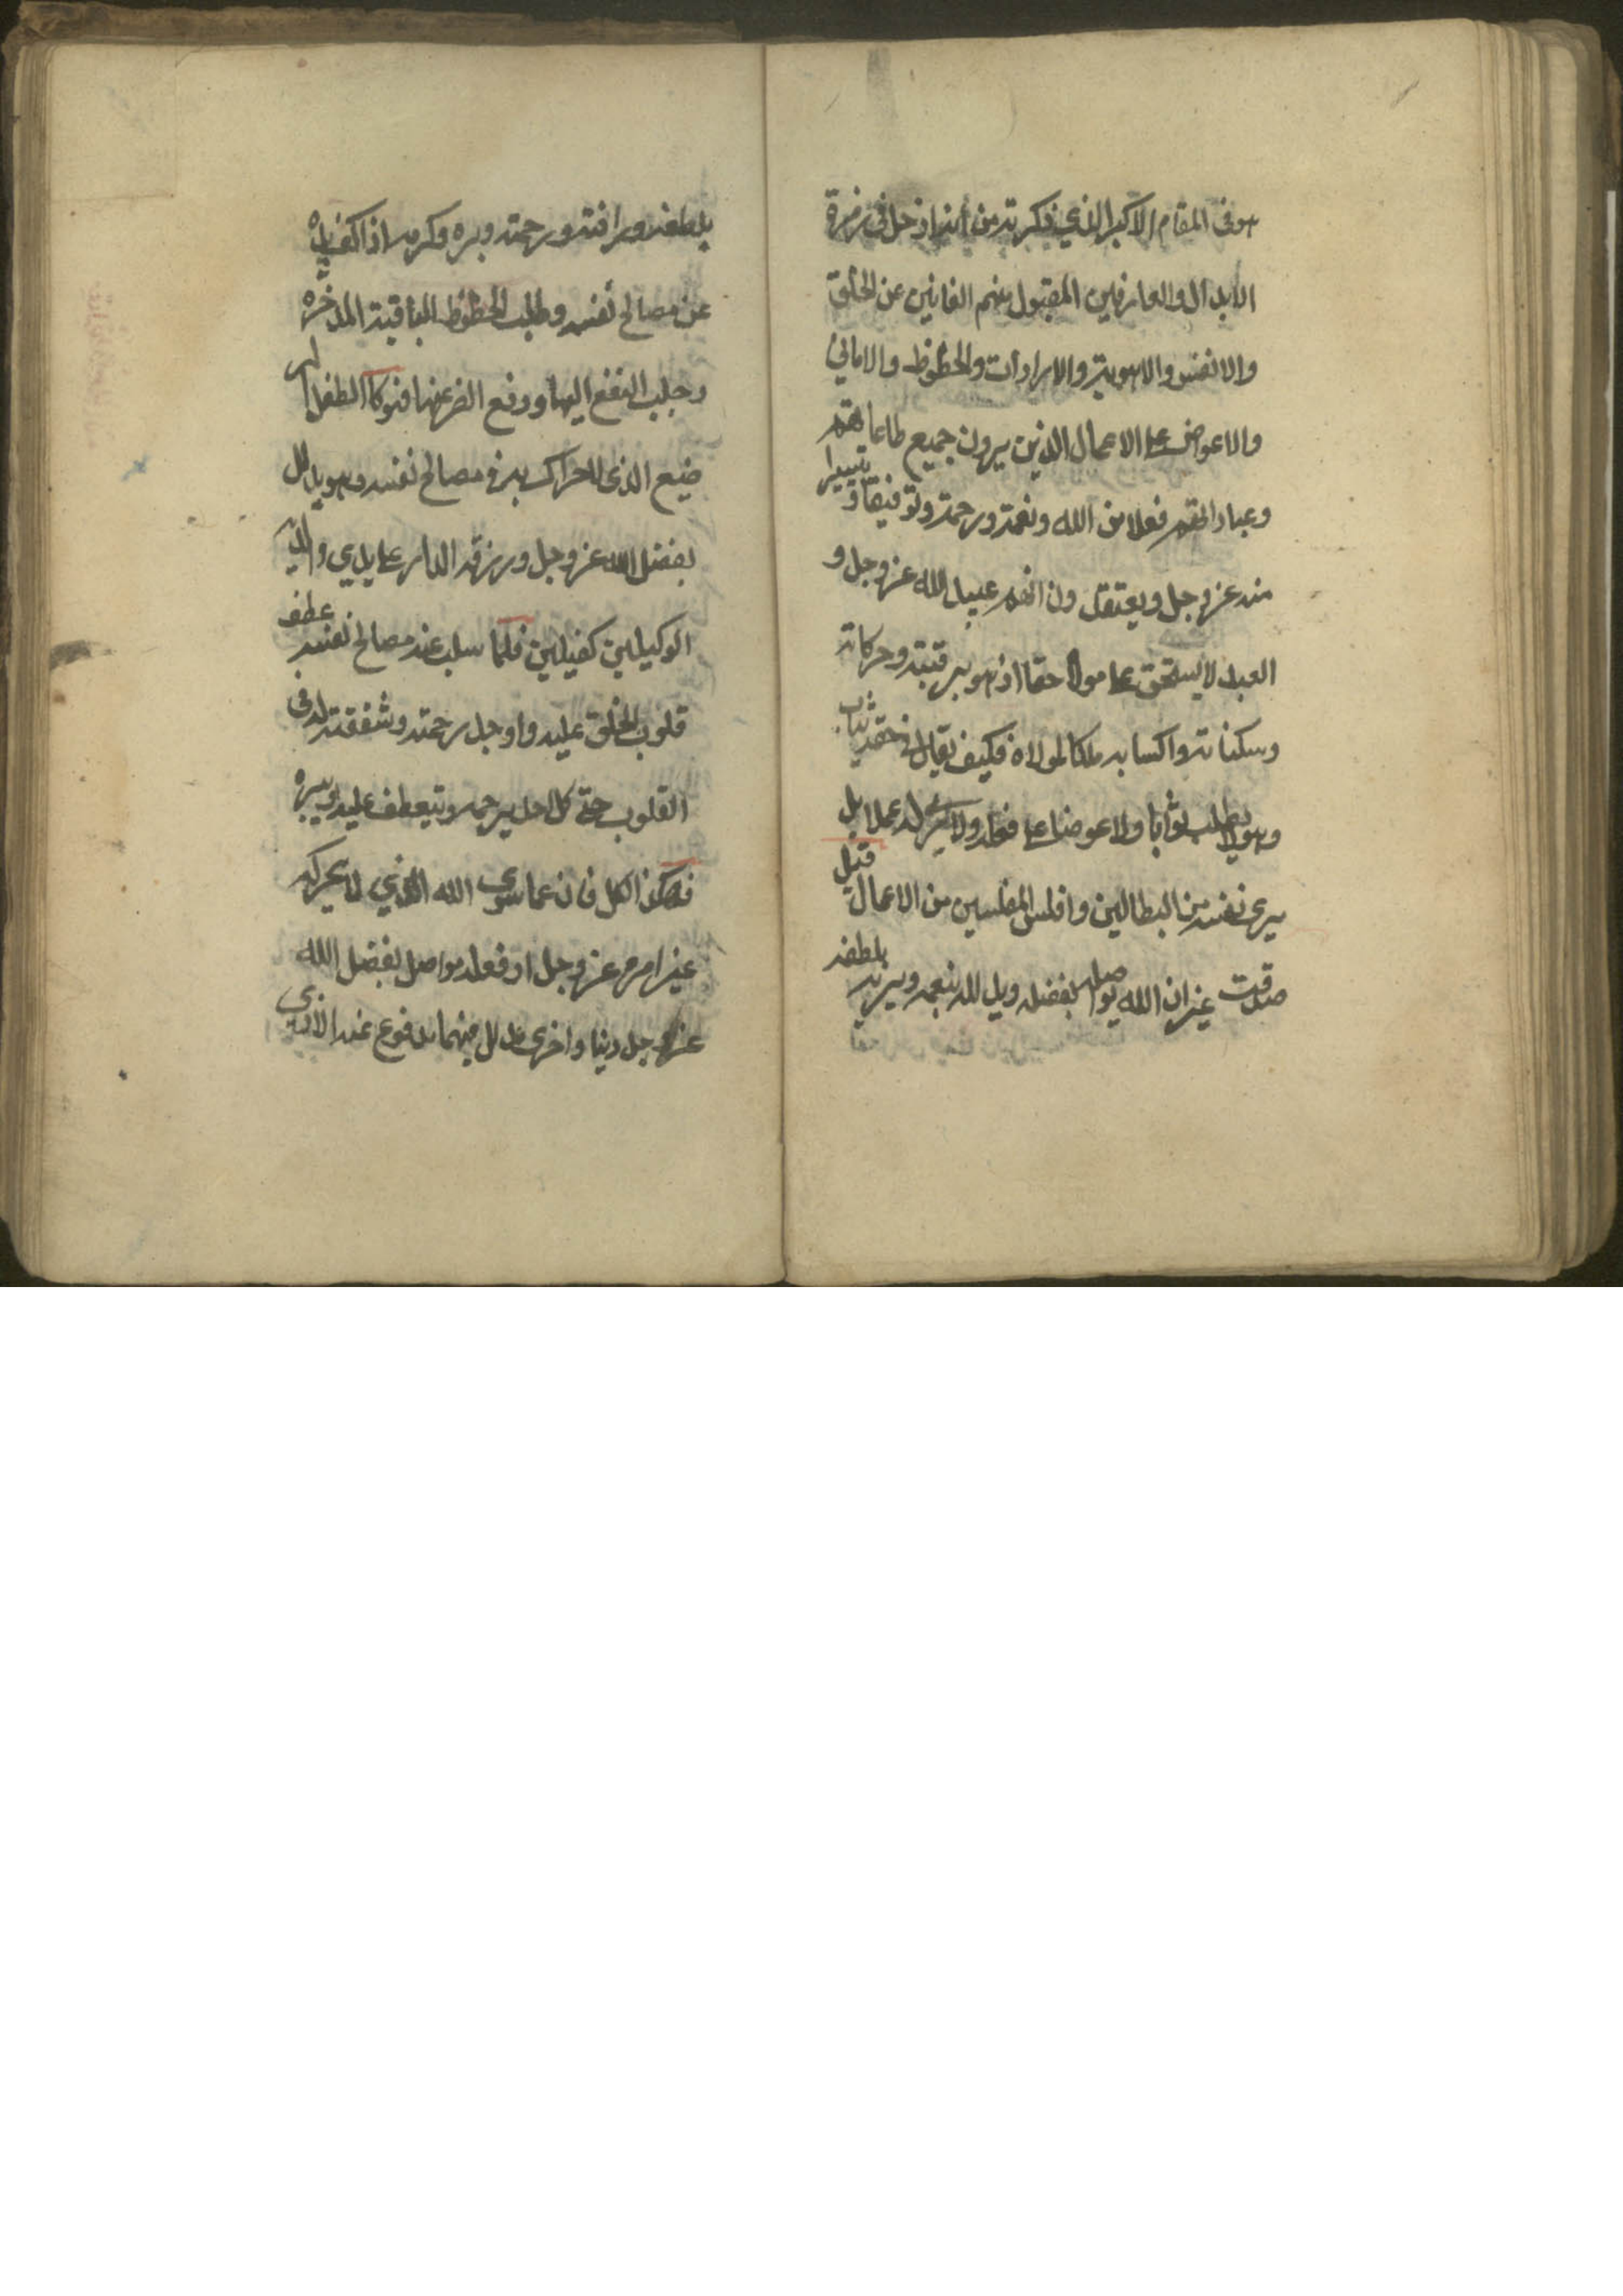 هو في المقام الاكبر الذي ذكرته من انه اذ دخل في زمرة
الابدال والعارفين المقبول منهم الفانين عن الخلق
والانفس والاهوية والارادات والحظوظ والاماني
والاعواض على الاعمال الذين يرون جميع طاعاتهم
وعباداتهم فعلا من الله ونعمة ورحمة وتوفيقا و تيسيرا
منه عز وجل ويعتقدون انهم عبيد الله عز وجل و
العبد لا يستحق على مولاه حقا اذ هو برقبته وحركاته
وسكناته واكسابه ملكا لمولاه فكيف يقال في حقه يثاب
وهو لا يطلب ثوابا ولا عوضا على فعله ولا يرى له عملا بل
يرى نفسه من البطالين وافلس المفلسين من الاعمال قيل
صدقت غير ان الله يواصله بفضله ويدلله بنعمه ويربيه بلطفه
بلطفه ورافته ورحمته وبره وكرمه اذا كف يده
عن مصالح نفسه وطلب الحظوظ الباقية المدخرة له
وجلب النفع اليها ودفع الضر عنها فهو كالطفل الر
ضيع الذي لا حراك به في مصالح نفسه وهو يدلل
بفضل الله عز وجل ورزقه الدار على يدي والديه
الوكيلين كفيلين فلما سلب عنه مصالح نفسه عطف
قلوب الخلق عليه واوجد رحمته وشفقته له في
القلوب حتى كل احد يرحمه ويتعطف عليه ويبره
فهكذا الكل فان عما سوى الله الذي لا يحركه
غير امره عز وجل او فعله مواصل بفضل الله
عز وجل دنيا واخرى مدلل فيهما مدفوع عنه الاذى